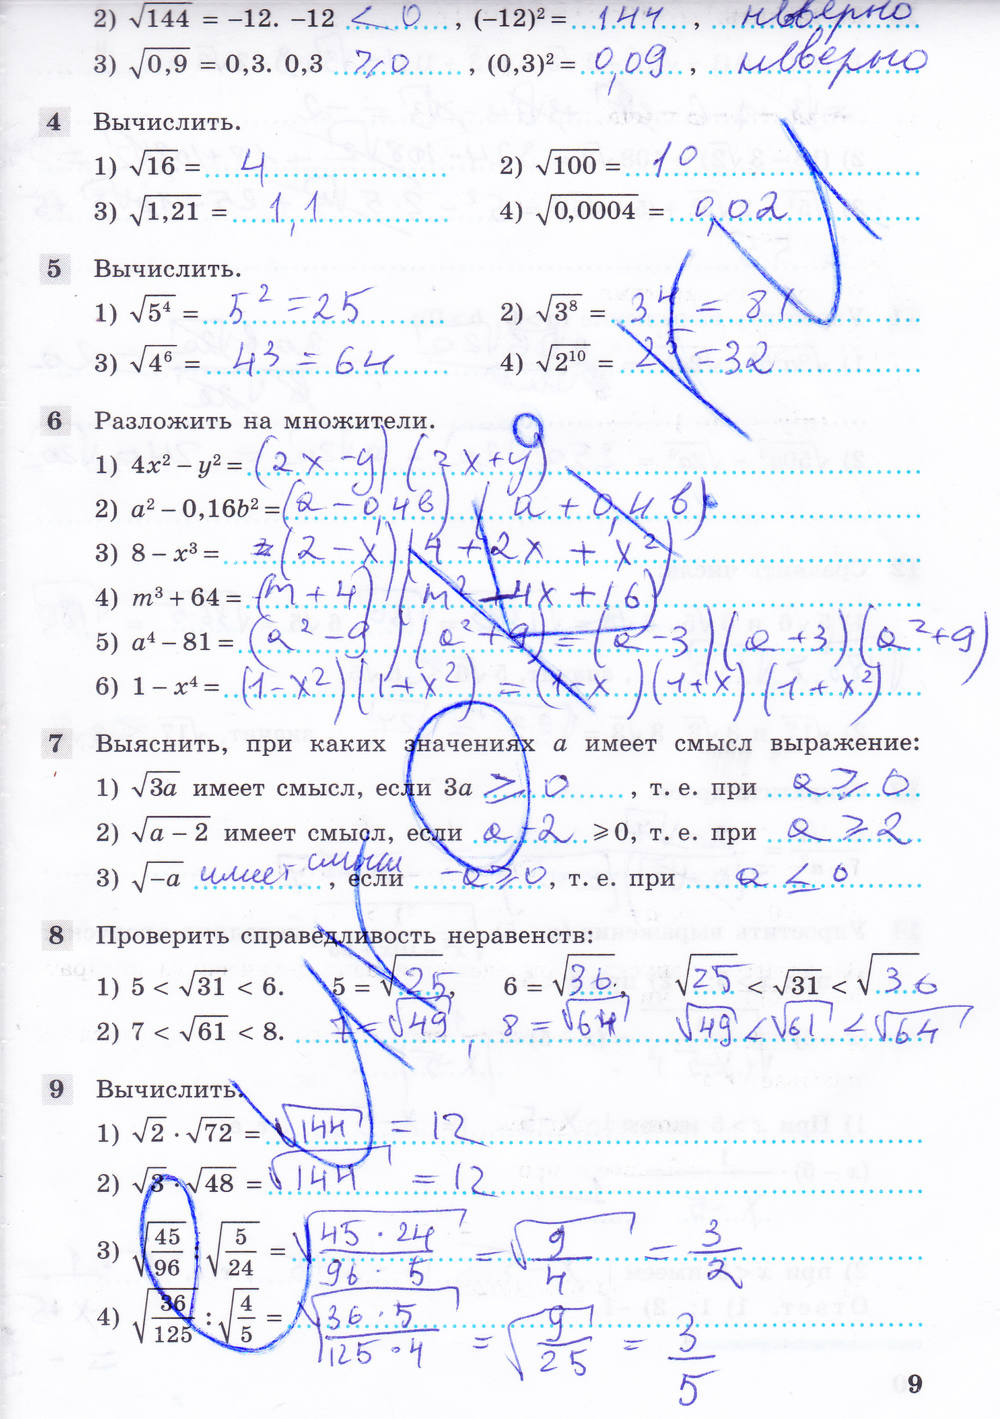 2) √144 = –12. –12 < 0, (–12)² = 144, неверно
3) √0,9 = 0,3. 0,3 ≥ 0, (0,3)² = 0,09, неверно
4 Вычислить.
1) √16 = 4 2) √100 = 10
3) √1,21 = 1,1 4) √0,0004 = 0,02
5 Вычислить.
1) √5⁴ = 5² = 25 2) √3⁸ = 3⁴ = 81
3) √4⁶ = 4³ = 64 4) √2¹⁰ = 2⁵ = 32
6 Разложить на множители.
1) 4x² – y² = (2x – y)(2x + y)
2) a² – 0,16b² = (a – 0,4b)(a + 0,4b)
3) 8 – x³ = (2 – x)(4 + 2x + x²)
4) m³ + 64 = (m + 4)(m² – 4x + 16)
5) a⁴ – 81 = (a² – 9)(a² + 9) = (a – 3)(a + 3)(a² + 9)
6) 1 – x⁴ = (1 – x²)(1 + x²) = (1 – x)(1 + x)(1 + x²)
7 Выяснить, при каких значениях a имеет смысл выражение:
1) √3a имеет смысл, если 3a ≥ 0, т. е. при a ≥ 0
2) √a – 2 имеет смысл, если a – 2 ≥ 0, т. е. при a ≥ 2
3) √–a имеет смысл, если –a ≥ 0, т. е. при a ≤ 0
8 Проверить справедливость неравенств:
1) 5 < √31 < 6. 5 = √25, 6 = √36, √25 < √31 < √36
2) 7 < √61 < 8. 7 = √49, 8 = √64 √49 < √61 < √64
9 Вычислить.
1) √2 · √72 = √144 = 12
2) √3 · √48 = √144 = 12
3) √45/96 : √5/24 = √45 · 24/96 · 5 = √9/4 = 3/2
4) √36/125 : √4/5 = √36 · 5/125 · 4 = √9/25 = 3/5
9